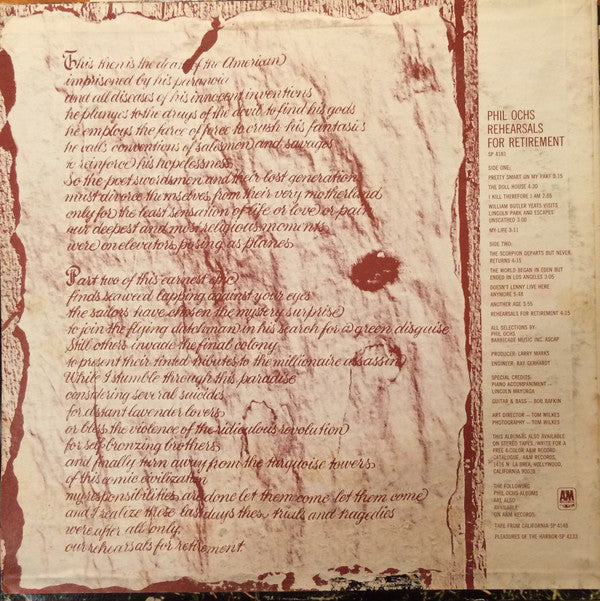 This then is the death of the American
imprisoned by his paranoia
and all diseases of his innocent inventions
he plunges to the drugs of the devil to find his gods
he employs the farce of force to crush his fantasies
he calls conventions of salesmen and savages
to reinforce his hopelessness
So the poet swordsmen and their lost generation
must divorce themselves from their very motherland
only for the least sensation of life or love or pain
our deepest and most religious moments
were on elevators posing as planes
Part two of this earnest epic
finds seaweed lapping against your eyes
the sailors have chosen the mystery surprise
to join the flying dutchman in his search for a green disguise
Still others invade the final colony
to present their tinted tributes to the millionaire assassin
While I stumble through this paradise
considering several suicides
for distant lavender lovers
or bless the violence of the ridiculous revolution
for self-bronzing brothers
and finally turn away from the turquoise towers
of this comic civilization
my responsibilities are done let them come let them come
and I realize these last days these trials and tragedies
were after all only
our rehearsals for retirement.
PHIL OCHS
REHEARSALS
FOR RETIREMENT
SP 4181
SIDE ONE:
PRETTY SMART ON MY PART 3:15
THE DOLL HOUSE 4:20
I KILL THEREFORE I AM 2:55
WILLIAM BUTLER YEATS VISITS
LINCOLN PARK AND ESCAPES
UNSCATHED 3:00
MY LIFE 3:11
SIDE TWO:
THE SCORPION DEPARTS BUT NEVER
RETURNS 4:15
THE WORLD BEGAN IN EDEN BUT
ENDED IN LOS ANGELES 3:05
DOESN'T LENNY LIVE HERE
ANYMORE 5:48
ANOTHER AGE 3:55
REHEARSALS FOR RETIREMENT 4:15
ALL SELECTIONS BY:
PHIL OCHS
BARRICADE MUSIC INC. ASCAP
PRODUCER: LARRY MARKS
ENGINEER: RAY GERHARDT
SPECIAL CREDITS:
PIANO ACCOMPANIMENT —
LINCOLN MAYORGA
GUITAR & BASS — BOB RAFKIN
ART DIRECTOR — TOM WILKES
PHOTOGRAPHY — TOM WILKES
THIS ALBUM IS ALSO AVAILABLE
ON STEREO TAPES. WRITE FOR A
FREE 4-COLOR A&M RECORD
CATALOGUE. A&M RECORDS,
1416 N. LA BREA, HOLLYWOOD,
CALIFORNIA 90028
THE FOLLOWING
PHIL OCHS ALBUMS
ARE ALSO
AVAILABLE
ON A&M RECORDS
A&M
TAPE FROM CALIFORNIA-SP 4148
PLEASURES OF THE HARBOR-SP 4133